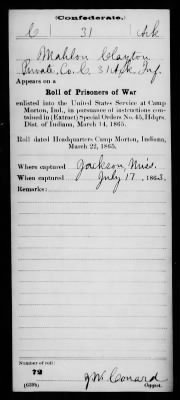 (Confederate.)
C 31 Ark
Mahlon Clayton
Private, Co. C, 31 Ark. Inf.
Appears on a
Roll of Prisoners of War
enlisted into the United States Service at Camp
Morton, Ind., in pursuance of instructions con-
tained in (Extract) Special Orders No. 45, Hdqrs.
Dist. of Indiana, March 14, 1865.
Roll dated Headquarters Camp Morton, Indiana,
March 22, 1865.
Where captured Jackson, Miss.
When captured July 17, 1863.
Remarks:
Number of roll:
79
(639b) J W Conard
Copyist.